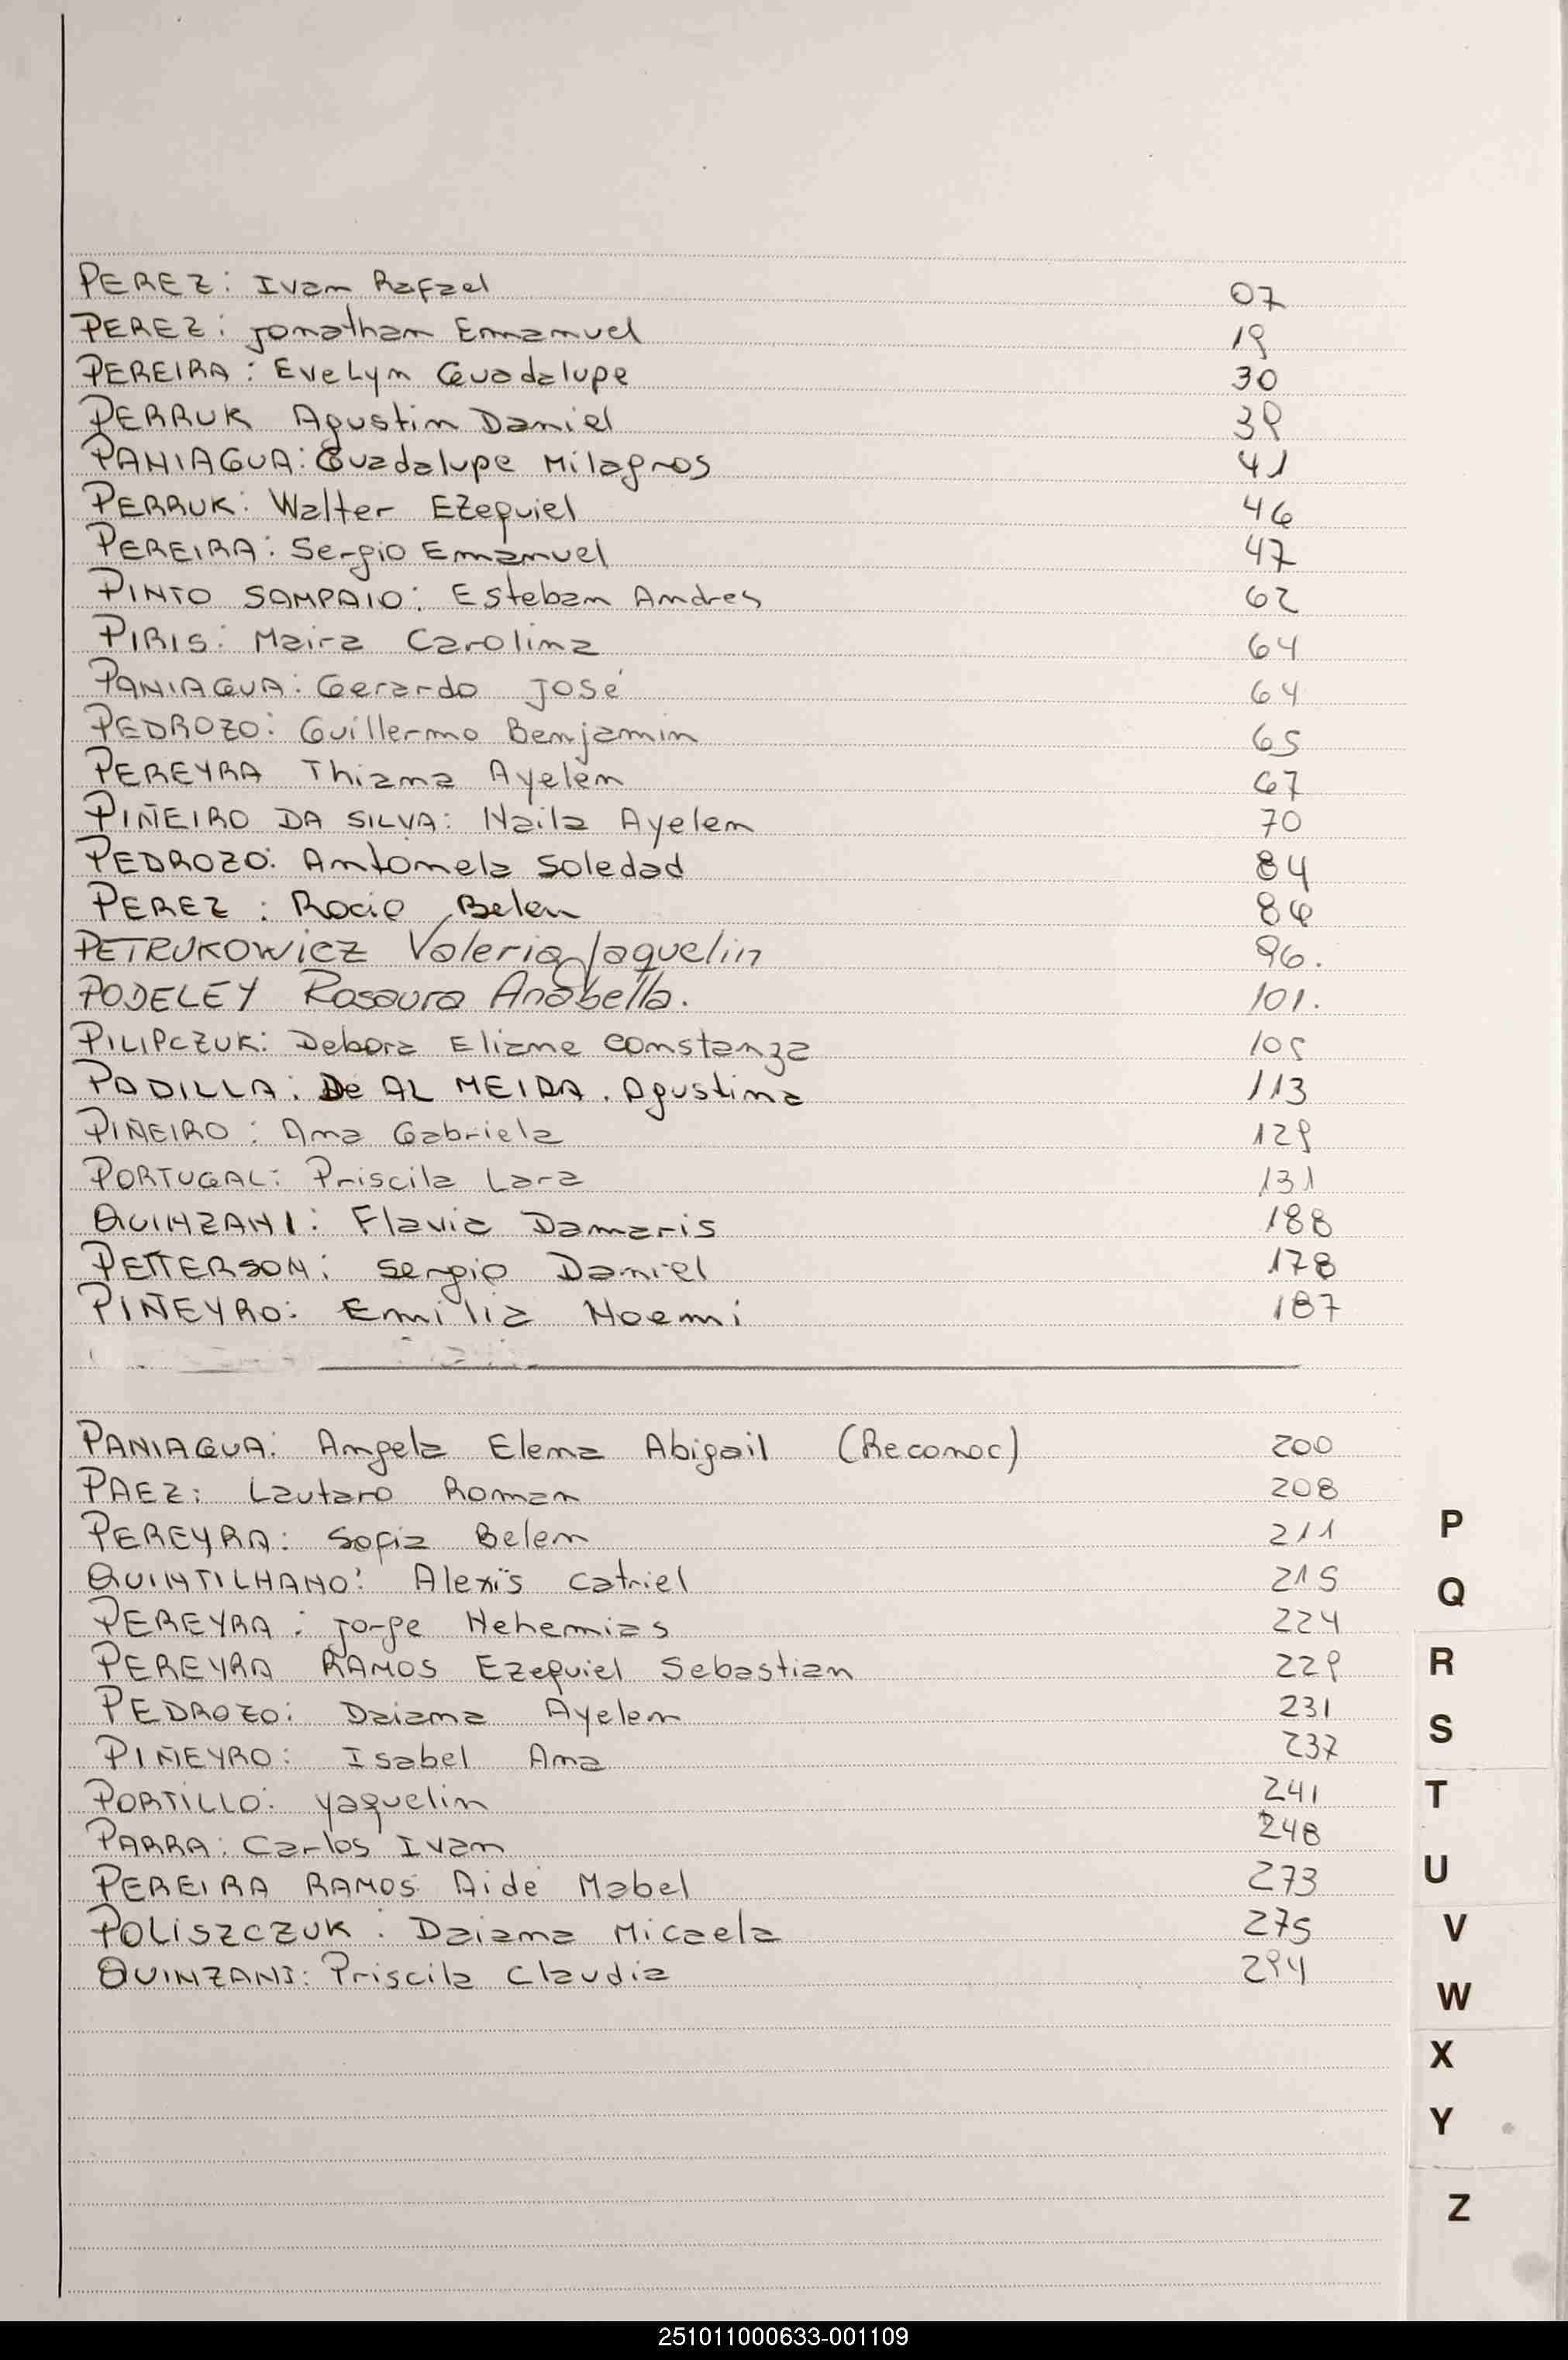 PEREZ: Ivan Rafael 07
PEREZ: Jonathan Emanuel 19
PEREIRA: Evelyn Guadalupe 30
PERRUK Agustin Daniel 39
PANIAGUA: Guadalupe Milagros 41
PERRUK: Walter Ezequiel 46
PEREIRA: Sergio Emanuel 47
PINTO SAMPAIO: Esteban Andres 62
PIRIS: Maira Carolina 64
PANIAGUA: Gerardo José 64
PEDROZO: Guillermo Benjamin 65
PEREYRA Thiana Ayelén 67
PIÑEIRO DA SILVA: Naila Ayelen 70
PEDROZO: Antonela Soledad 84
PEREZ: Rocio Belen 86
PETRUKOWICZ Valeria Jaquelin 96.
PODELEY Rosaura Anabella. 101.
PILIPCZUK: Debora Eliane Constanza 105
PADILLA: De AL MEIDA. Agustina 113
PIÑEIRO: Ana Gabriela 129
PORTUGAL: Priscila Lara 131
QUINZANI: Flavia Damaris 188
PETTERSON: Sergio Daniel 178
PIÑEYRO: Emilia Noemi 187
PANIAGUA: Angela Elena Abigail (Reconoc) 200
PAEZ: Lautaro Roman 208
PEREYRA: Sofia Belen 211
QUINTILHANO: Alexis Catriel 215
PEREYRA: Jorge Nehemias 224
PEREYRA RAMOS Ezequiel Sebastian 229
PEDROZO: Daiana Ayelen 231
PIÑEYRO: Isabel Ana 237
PORTILLO: Yaquelin 241
PARRA: Carlos Ivan 248
PEREIRA RAMOS Aidé Mabel 273
POLISZCZUK: Daiana Micaela 275
QUINZANI: Priscila Claudia 294
P
Q
R
S
T
U
V
W
X
Y
Z
251011000633-001109